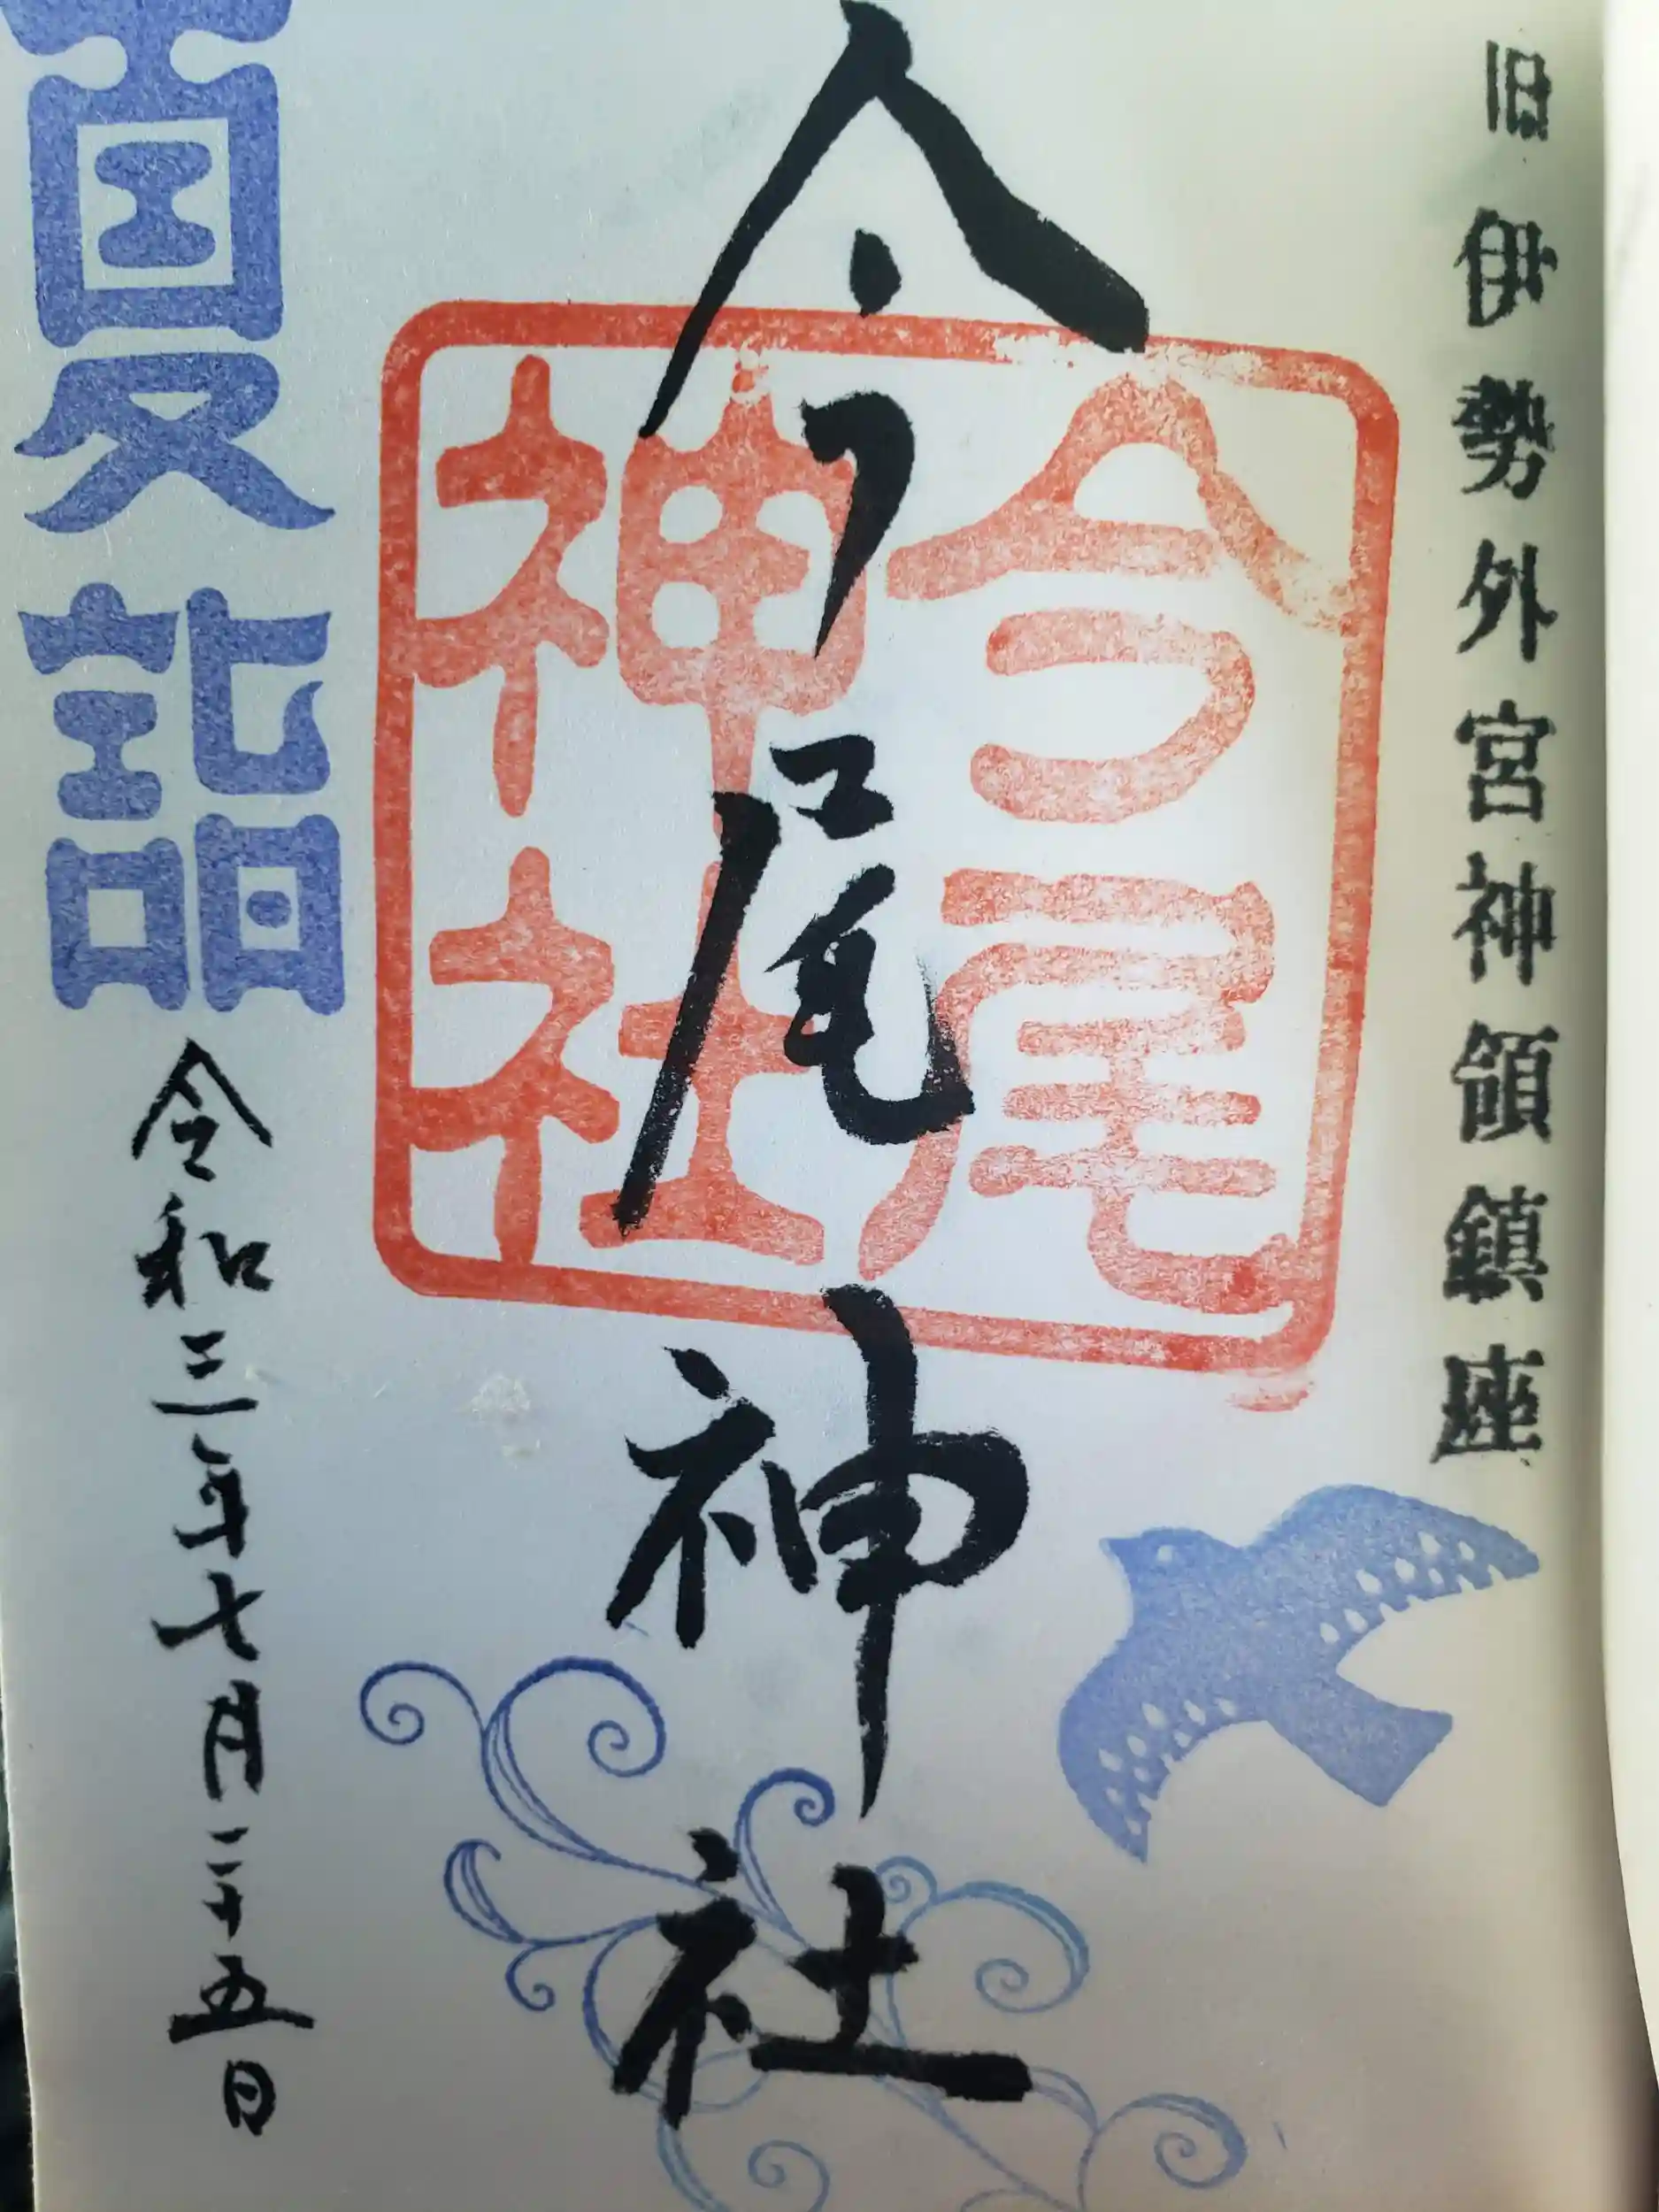 旧伊勢外宮神領鎮座
今尾神社
今尾
神社
夏詣
令和三年七月二十五日